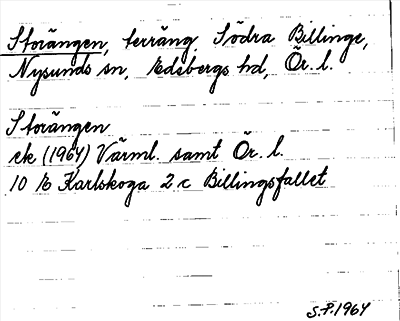 Storängen, terräng, Södra Billinge,
Nysunds sn, Edsbergs hd, Ör. l.
Storängen
ek (1964) Värml. samt Ör. l.
10 E Karlskoga 2 c Billingsfallet
S.P. 1964